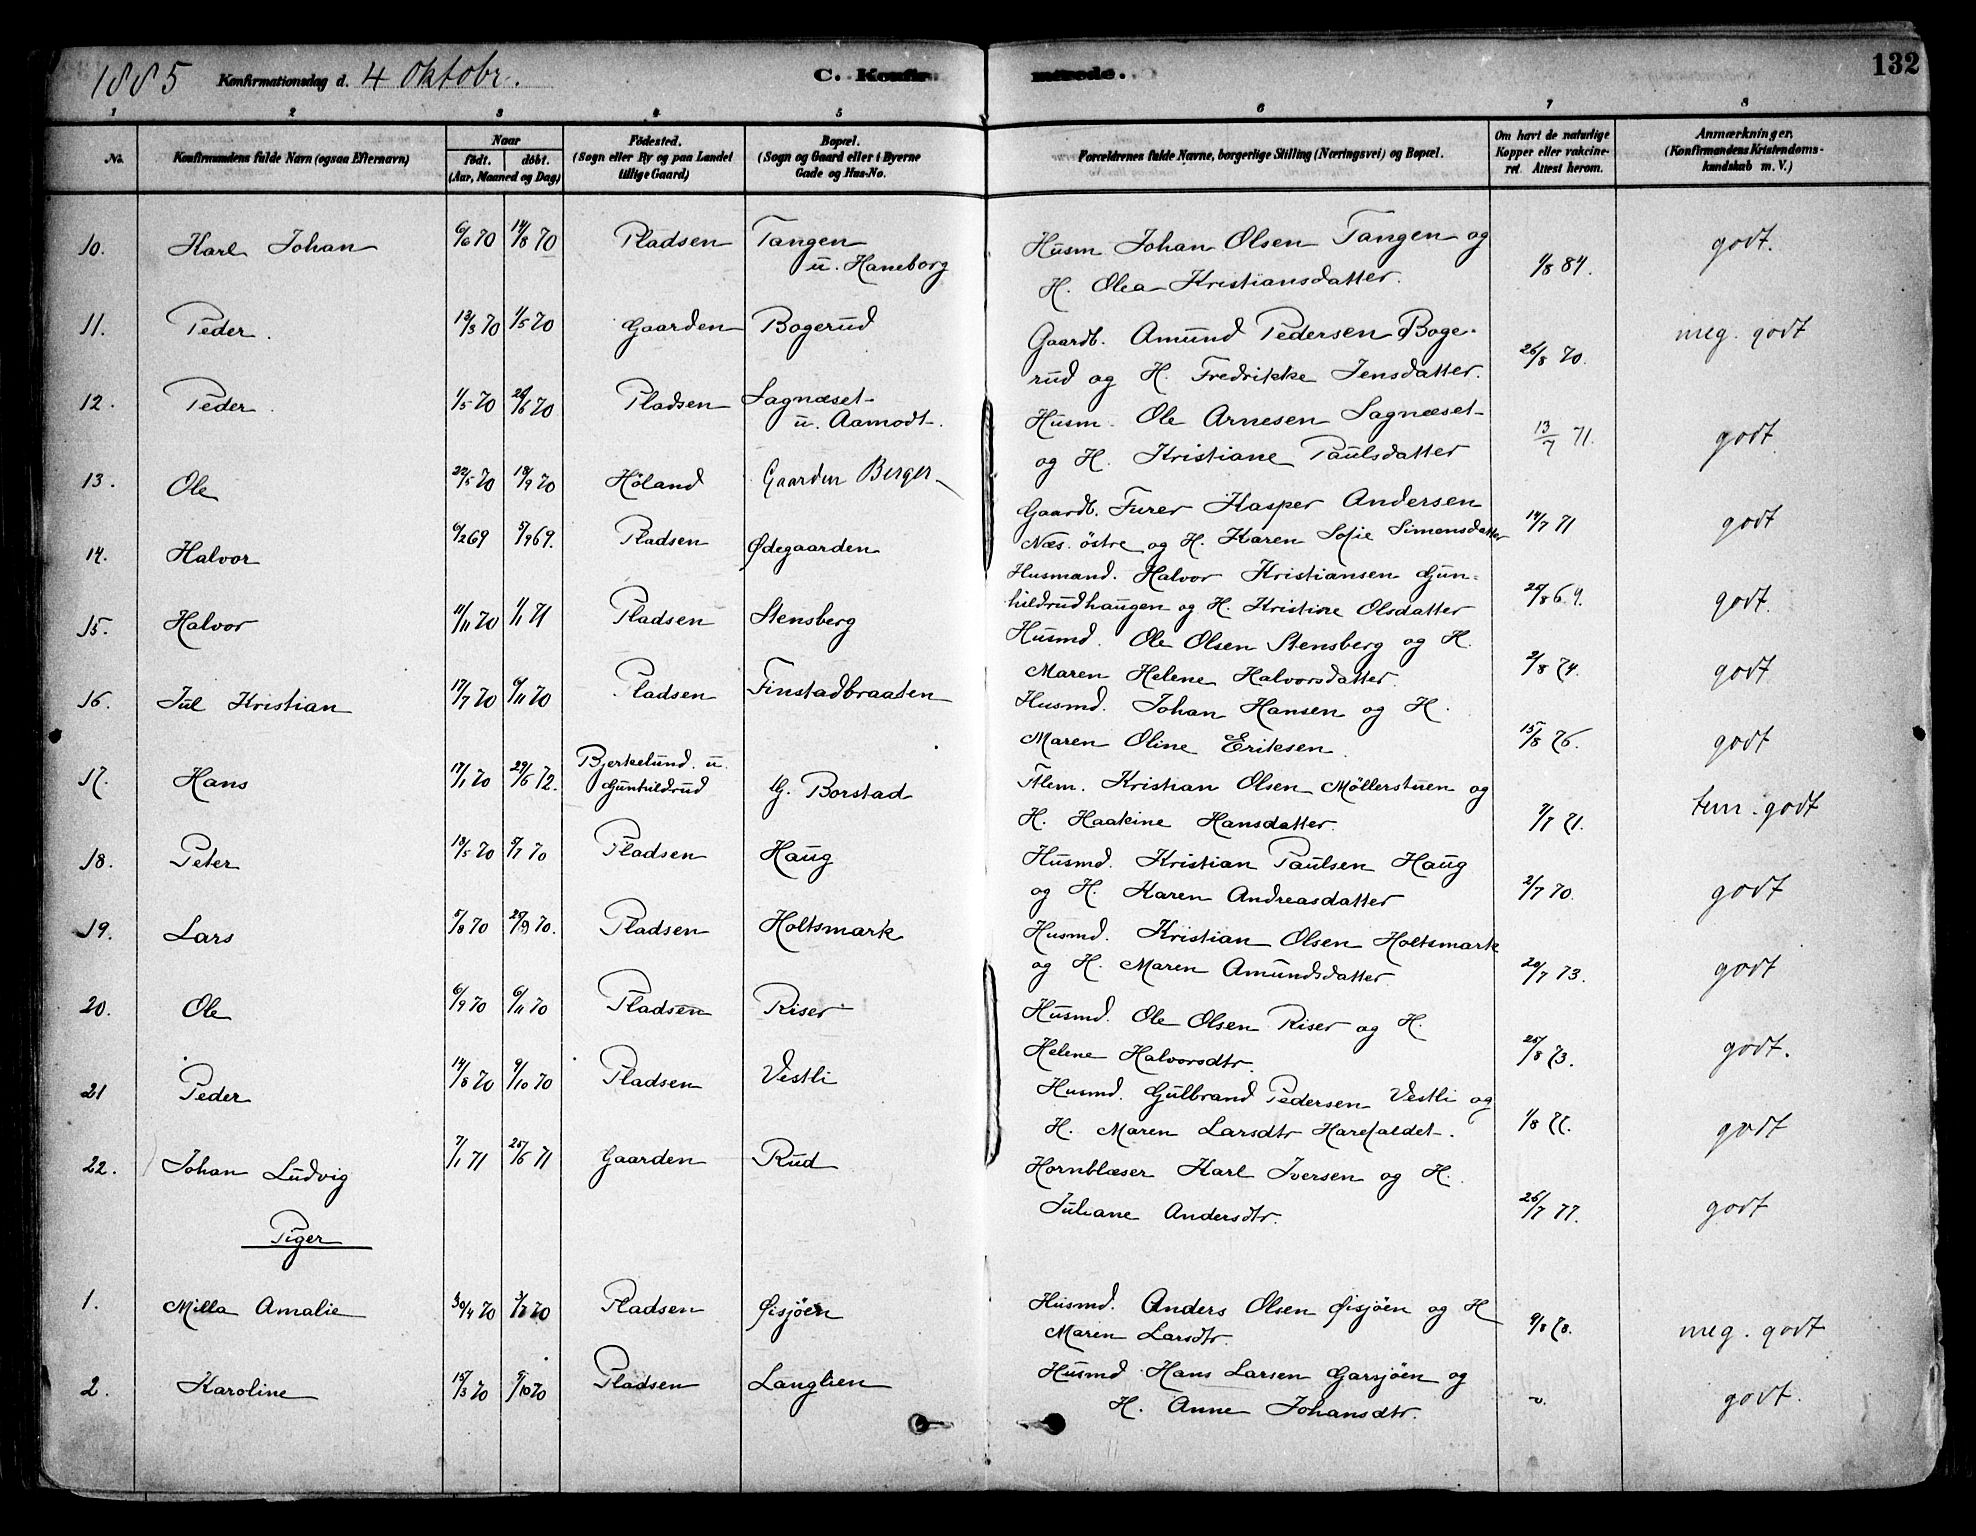 132
1885 Konfirmationsdag d. 4 Oktobr. C. Konfirmerede.
1 2 3 4 5 6 7 8
No. Konfirmandens fulde Navn (ogsaa Efternavn) Naar født. døbt. (Aar, Maaned og Dag) Fødested. (Sogn eller By og paa Landet tillige Gaard) Bopæl. (Sogn og Gaard eller i Byerne Gade og Hus-No. Forældrenes fulde Navne, borgerlige Stilling (Næringsvei) og Bopæl. Om havt de naturlige Kopper eller vakcineret. Attest herom. Anmærkninger. (Konfirmandens Kristendomskundskab m. V.)
10. Karl Johan 6/6 70 14/8 70 Pladsen Tangen u. Haneborg Husm Johan Olsen Tangen og H. Olea Kristiansdatter. 1/8 84. godt.
11. Peder. 12/3 70 1/5 70 Gaarden Bogerud Gaardb. Amund Pedersen Bogerud og H. Fredrikke Jensdatter. 26/8 70. meg. godt
12. Peder. 1/5 70 26/6 70 Pladsen Sagnæset u. Aamodt. Husm. Ole Arnesen Sagnæset og H. Kristiane Paulsdatter 13/7 71. godt.
13. Ole 22/5 70 18/9 70 Høland Gaarden Berger Gaardb. Furer Kasper Andersen Næs. östre og H. Karen Sofie Simensdatter 14/7 71 godt
14. Halvor 6/2 69 5/9 69. Pladsen Ødegaarden Husmand. Halvor Kristiansen Gunhildrudhaugen og H. Kristine Olsdatter 22/8 69. godt.
15. Halvor 11/11 70 1/1 71 Pladsen Stensberg Husmd. Ole Olsen Stensberg og H. Maren Helene Halvorsdatter. 2/8 74. godt
16. Jul Kristian 17/7 70 6/11 70 Pladsen Finstadbraaten Husmd. Johan Hansen og H. Maren Oline Eriksen. 15/8 76. godt
17. Hans 17/1 70 29/6 72. Bjerkelund. u. Gunhildrud G. Borstad Flem. Kristian Olsen Möllerstuen og H. Haakine Hansdatter. 7/7 71. tem. godt
18. Peter 13/5 70 9/7 70 Pladsen Haug Husmd. Kristian Paulsen Haug og H. Karen Andreasdatter 2/7 70. godt
19. Lars 5/8 70 25/9 70. Pladsen Holtsmark Husmd. Kristian Olsen Holtsmark og H. Maren Amundsdatter. 20/7 73. godt
20. Ole 6/9 70 6/11 70 Pladsen Riser Husmd. Ole Olsen Riser og H. Helene Halvorsdtr. 25/8 73. godt.
21 Peder 14/8 70 9/10 70 Pladsen Vestli Husmd. Gulbrand Pedersen Vestli og H. Maren Larsdtr Harefaldet. 1/8 godt
22. Johan Ludvig 7/1 71 25/6 71 Gaarden Rud Hornblæser Karl Iversen og H. Juliane Andersdtr. 26/7 77. godt
Piger
1. Milla Amalie 30/4 70 3/7 70 Pladsen Øisjöen Husmd. Anders Olsen Øisjöen og H Maren Larsdtr. 9/8 78. meg. godt
2. Karoline 15/3 70 9/10 70 Pladsen Langlien Husmd Hans Larsen Garsjöen og H. Anne Johansdtr. v. godt.